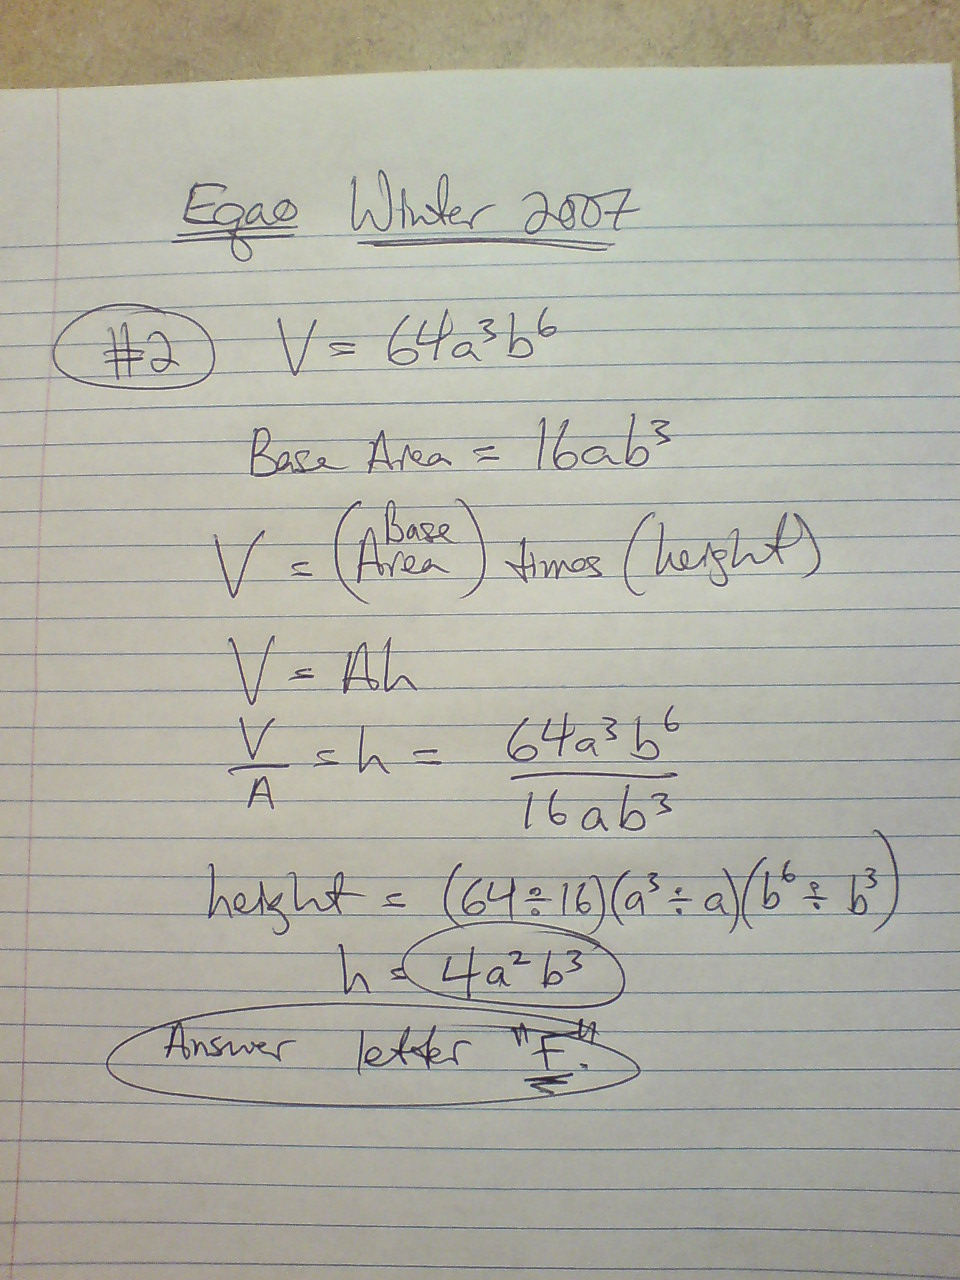 Eqao Winter 2007
#2 V = 64a³b⁶
Base Area = 16ab³
V = (Base Area) times (height)
V = Ah
V/A = h = 64a³b⁶/16ab³
height = (64÷16)(a³÷a)(b⁶÷b³)
h = 4a²b³
Answer letter "F."